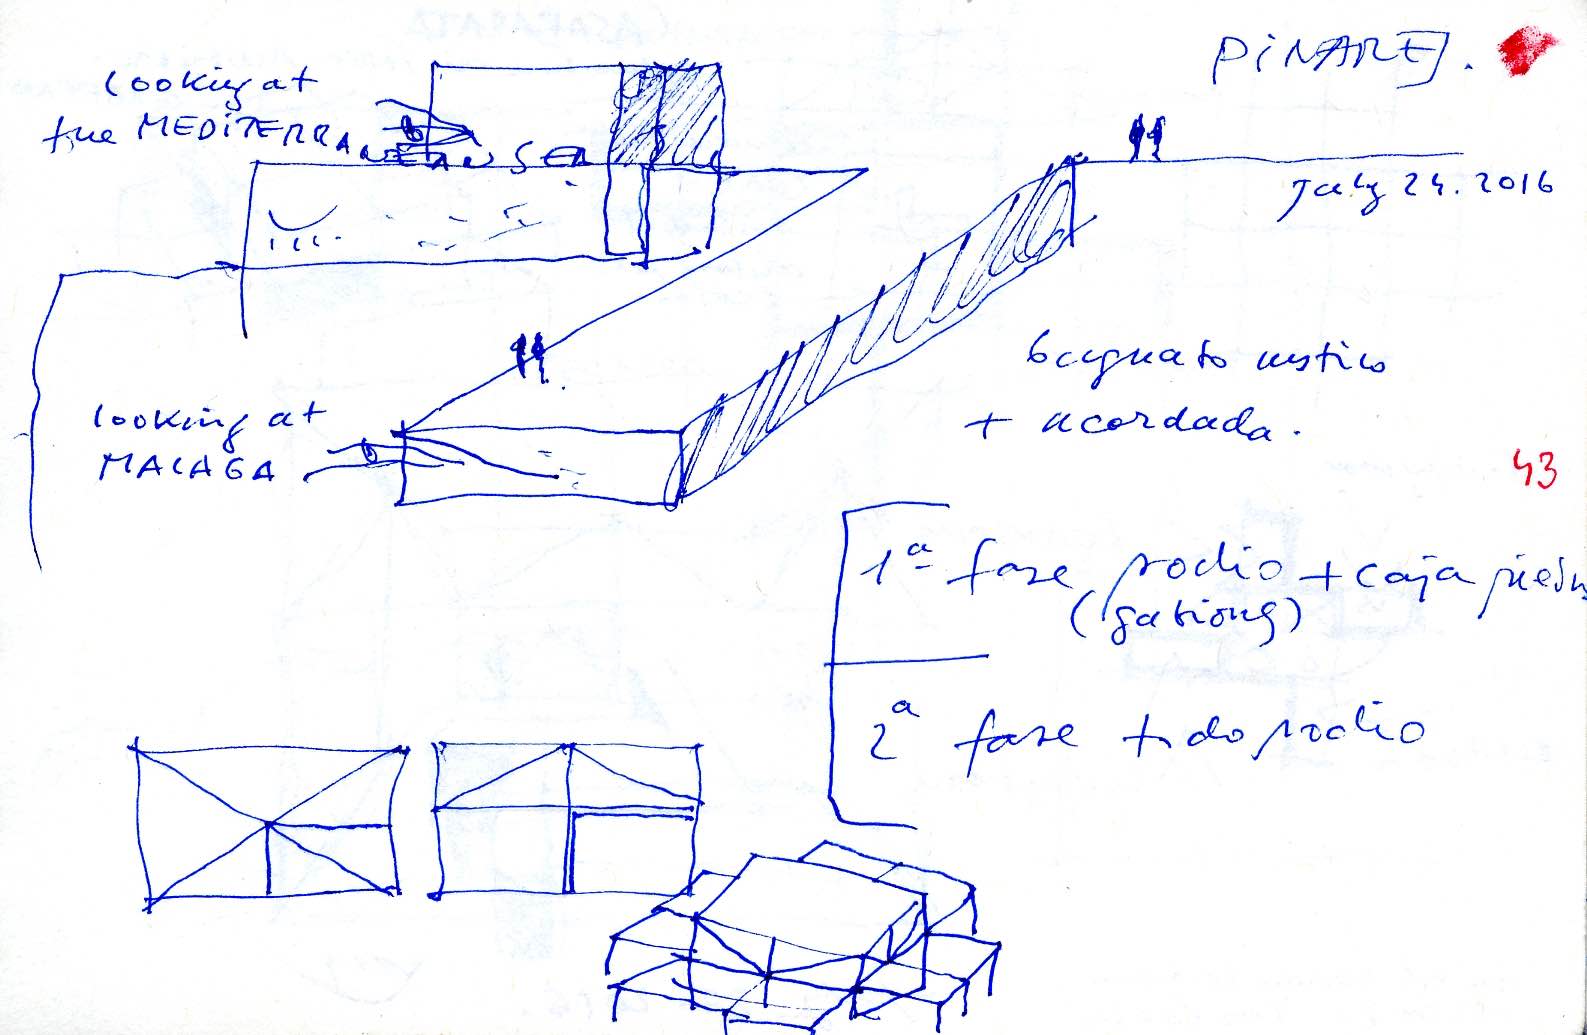 PINARES.
looking at
the MEDITERRANEAN SEA
July 24. 2016
looking at
MALAGA
+ acordada.
43
1ª fase podio + caja piedra
(gavions)
2ª fase todo podio